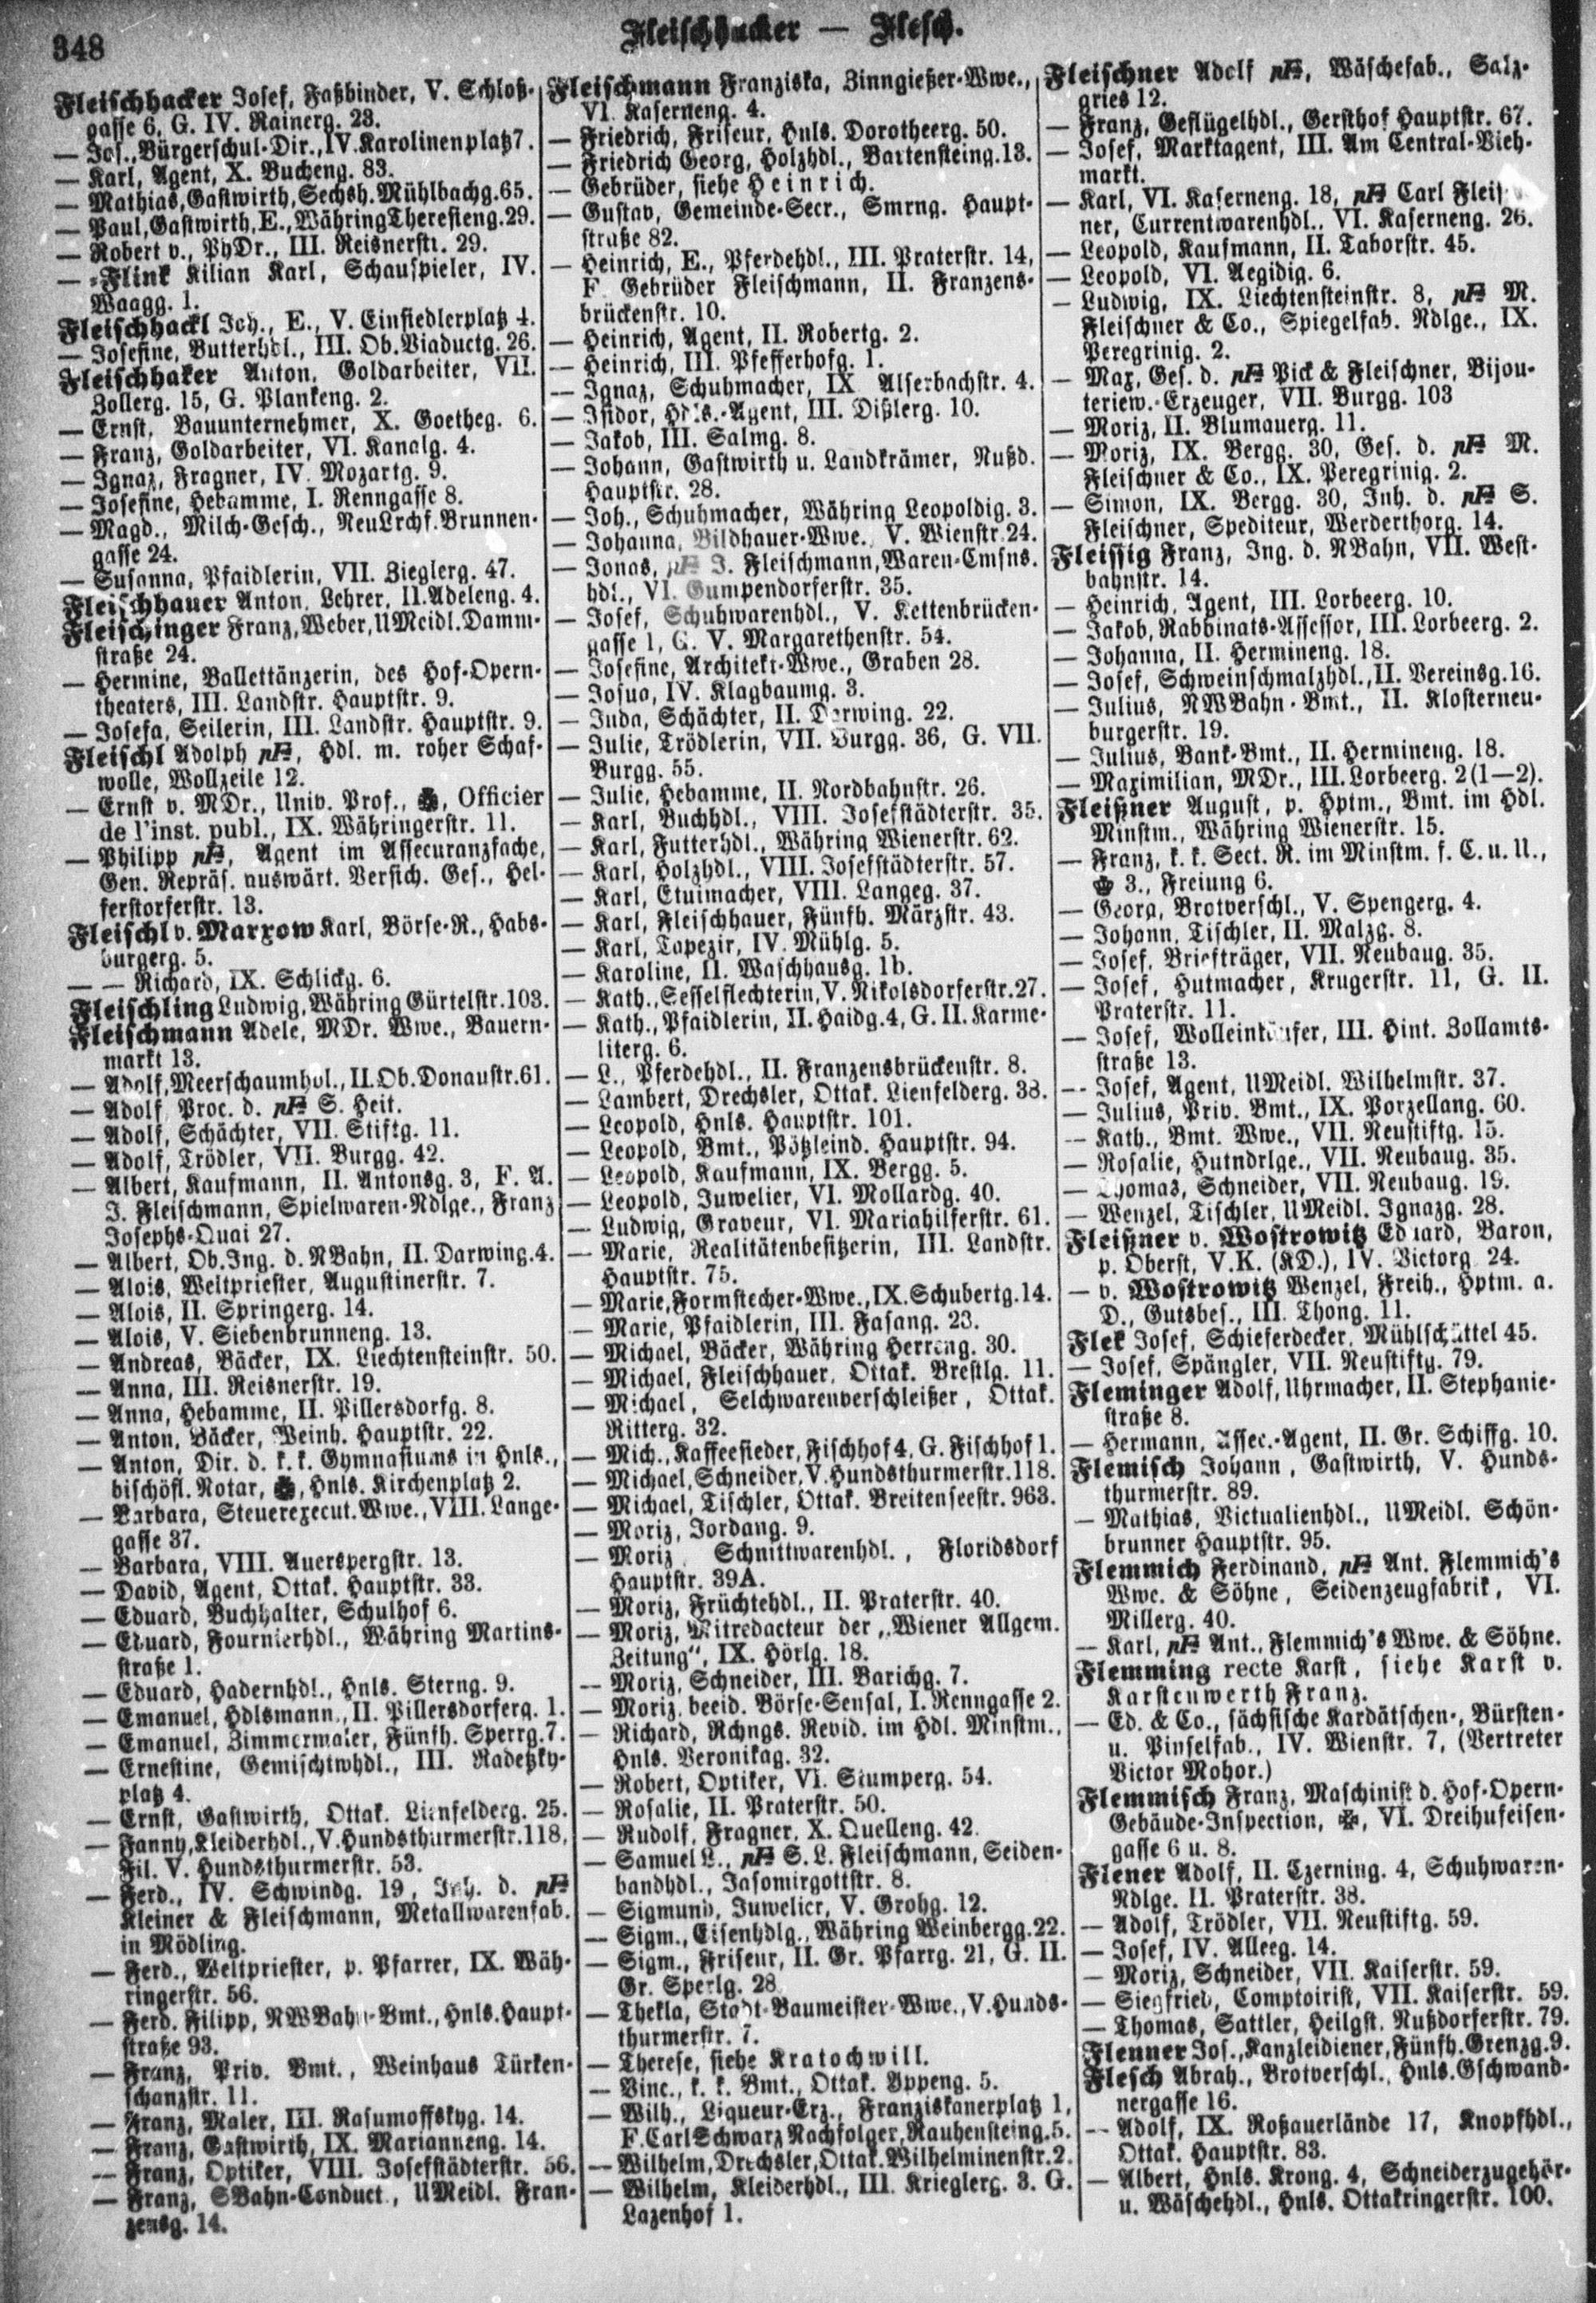 348
Fleischhacker — Flesch.
Fleischhacker Josef, Faßbinder, V. Schloß-
gasse 6, G. IV. Rainerg. 23.
— Jos., Bürgerschul-Dir., IV. Karolinenplatz 7.
— Karl, Agent, X. Bucheng. 83.
— Mathias, Gastwirth, Sechsh. Mühlbachg. 65.
— Paul, Gastwirth, E., Währing Theresieng. 29.
— Robert v., PhDr., III. Reisnerstr. 29.
— -Flink Kilian Karl, Schauspieler, IV.
Waagg. 1.
Fleischhackl Joh., E., V. Einsiedlerplatz 4.
— Josefine, Butterhdl., III. Ob. Viaductg. 26.
Fleischhaker Anton, Goldarbeiter, VII.
Zollerg. 15, G. Plankeng. 2.
— Ernst, Bauunternehmer, X. Goetheg. 6.
— Franz, Goldarbeiter, VI. Kanalg. 4.
— Ignaz, Fragner, IV. Mozartg. 9.
— Josefine, Hebamme, I. Renngasse 8.
— Magd., Milch-Gesch., NeuLrchf. Brunnen-
gasse 24.
— Susanna, Pfaidlerin, VII. Zieglerg. 47.
Fleischhauer Anton, Lehrer, II. Adeleng. 4.
Fleischinger Franz, Weber, UMeidl. Damm-
straße 24.
— Hermine, Ballettänzerin, des Hof-Opern-
theaters, III. Landstr. Hauptstr. 9.
— Josefa, Seilerin, III. Landstr. Hauptstr. 9.
Fleischl Adolph pF, Hdl. m. roher Schaf-
wolle, Wollzeile 12.
— Ernst v. MDr., Univ. Prof., Officier
de l'inst. publ., IX. Währingerstr. 11.
— Philipp pF, Agent im Assecuranzfache,
Gen. Repräs. auswärt. Versich. Ges., Hel-
ferstorferstr. 13.
Fleischl v. Marxow Karl, Börse-R., Habs-
burgerg. 5.
— — Richard, IX. Schlickg. 6.
Fleischling Ludwig, Währing Gürtelstr. 103.
Fleischmann Adele, MDr. Wwe., Bauern-
markt 13.
— Adolf, Meerschaumhdl., II. Ob. Donaustr. 61.
— Adolf, Proc. d. pF S. Heit.
— Adolf, Schächter, VII. Stiftg. 11.
— Adolf, Trödler, VII. Burgg. 42.
— Albert, Kaufmann, II. Antonsg. 3, F. A.
J. Fleischmann, Spielwaren-Ndlge., Franz
Josephs-Quai 27.
— Albert, Ob. Ing. d. NBahn, II. Darwing. 4.
— Alois, Weltpriester, Augustinerstr. 7.
— Alois, II. Springerg. 14.
— Alois, V. Siebenbrunneng. 13.
— Andreas, Bäcker, IX. Liechtensteinstr. 50.
— Anna, III. Reisnerstr. 19.
— Anna, Hebamme, II. Pillersdorfg. 8.
— Anton, Bäcker, Weinh. Hauptstr. 22.
— Anton, Dir. d. k. k. Gymnasiums in Hnls.,
bischöfl. Notar, Hnls. Kirchenplatz 2.
— Barbara, Steuerexecut. Wwe., VIII. Lange-
gasse 37.
— Barbara, VIII. Auerspergstr. 13.
— David, Agent, Ottak. Hauptstr. 33.
— Eduard, Buchhalter, Schulhof 6.
— Eduard, Fournierhdl., Währing Martins-
straße 1.
— Eduard, Hadernhdl., Hnls. Sterng. 9.
— Emanuel, Hdlsmann., II. Pillersdorferg. 1.
— Emanuel, Zimmermaler, Fünfh. Sperrg. 7.
— Ernestine, Gemischtwhdl., III. Radetzky-
platz 4.
— Ernst, Gastwirth, Ottak. Lienfelderg. 25.
— Fanny, Kleiderhdl., V. Hundsthurmerstr. 118,
Fil. V. Hundsthurmerstr. 53.
— Ferd., IV. Schwindg. 19, Inh. d. pF
Kleiner & Fleischmann, Metallwarenfab.
in Mödling.
— Ferd., Weltpriester, p. Pfarrer, IX. Wäh-
ringerstr. 56.
— Ferd. Filipp, NWBahn-Bmt., Hnls. Haupt-
straße 93.
— Franz, Priv. Bmt., Weinhaus Türken-
schanzstr. 11.
— Franz, Maler, III. Rasumoffskyg. 14.
— Franz, Gastwirth, IX. Marianneng. 14.
— Franz, Optiker, VIII. Josefstädterstr. 56.
— Franz, SBahn-Conduct., UMeidl. Fran-
zensg. 14.
Fleischmann Franziska, Zinngießer-Wwe.,
VI. Kaserneng. 4.
— Friedrich, Friseur, Hnls. Dorotheerg. 50.
— Friedrich Georg, Holzhdl., Bartensteing. 13.
— Gebrüder, siehe Heinrich.
— Gustav, Gemeinde-Secr., Smrng. Haupt-
straße 82.
— Heinrich, E., Pferdehdl., III. Praterstr. 14,
F. Gebrüder Fleischmann, II. Franzens-
brückenstr. 10.
— Heinrich, Agent, II. Robertg. 2.
— Heinrich, III. Pfefferhofg. 1.
— Ignaz, Schuhmacher, IX Alserbachstr. 4.
— Isidor, Hdls.-Agent, III. Dißlerg. 10.
— Jakob, III. Salmg. 8.
— Johann, Gastwirth u. Landkrämer, Nußd.
Hauptstr. 28.
— Joh., Schuhmacher, Währing Leopoldig. 3.
— Johanna, Bildhauer-Wwe., V. Wienstr. 24.
— Jonas, pF J. Fleischmann, Waren-Cmsns.
hdl., VI. Gumpendorferstr. 35.
— Josef, Schuhwarenhdl., V. Kettenbrücken-
gasse 1, G. V. Margarethenstr. 54.
— Josefine, Architekt-Wwe., Graben 28.
— Josua, IV. Klagbaumg. 3.
— Juda, Schächter, II. Darwing. 22.
— Julie, Trödlerin, VII. Burgg. 36, G. VII.
Burgg. 55.
— Julie, Hebamme, II. Nordbahnstr. 26.
— Karl, Buchhdl., VIII. Josefstädterstr. 35.
— Karl, Futterhdl., Währing Wienerstr. 62.
— Karl, Holzhdl., VIII. Josefstädterstr. 57.
— Karl, Etuimacher, VIII. Langeg. 37.
— Karl, Fleischhauer, Fünfh. Märzstr. 43.
— Karl, Tapezir, IV. Mühlg. 5.
— Karoline, II. Waschhausg. 1b.
— Kath., Sesselflechterin, V. Nikolsdorferstr. 27.
— Kath., Pfaidlerin, II. Haidg. 4, G. II. Karme-
literg. 6.
— L., Pferdehdl., II. Franzensbrückenstr. 8.
— Lambert, Drechsler, Ottak. Lienfelderg. 38.
— Leopold, Hnls. Hauptstr. 101.
— Leopold, Bmt., Pötzleind. Hauptstr. 94.
— Leopold, Kaufmann, IX. Bergg. 5.
— Leopold, Juwelier, VI. Mollardg. 40.
— Ludwig, Graveur, VI. Mariahilferstr. 61.
— Marie, Realitätenbesitzerin, III. Landstr.
Hauptstr. 75.
— Marie, Formstecher-Wwe., IX. Schubertg. 14.
— Marie, Pfaidlerin, III. Fasang. 23.
— Michael, Bäcker, Währing Herreng. 30.
— Michael, Fleischhauer, Ottak. Brestlg. 11.
— Michael, Selchwarenverschleißer, Ottak.
Ritterg. 32.
— Mich., Kaffeesieder, Fischhof 4, G. Fischhof 1.
— Michael, Schneider, V. Hundsthurmerstr. 118.
— Michael, Tischler, Ottak. Breitenseestr. 963.
— Moriz, Jordang. 9.
— Moriz, Schnittwarenhdl., Floridsdorf
Hauptstr. 39A.
— Moriz, Früchtehdl., II. Praterstr. 40.
— Moriz, Mitredacteur der „Wiener Allgem.
Zeitung“, IX. Hörlg. 18.
— Moriz, Schneider, III. Barichg. 7.
— Moriz, beeid. Börse-Sensal, I. Renngasse 2.
— Richard, Rchngs. Revid. im Hdl. Minstm.,
Hnls. Veronikag. 32.
— Robert, Optiker, VI. Stumperg. 54.
— Rosalie, II. Praterstr. 50.
— Rudolf, Fragner, X. Quelleng. 42.
— Samuel L., pF S. L. Fleischmann, Seiden-
bandhdl., Jasomirgottstr. 8.
— Sigmund, Juwelier, V. Grohg. 12.
— Sigm., Eisenhdlg., Währing Weinbergg. 22.
— Sigm., Friseur, II. Gr. Pfarrg. 21, G. II.
Gr. Sperlg. 28
— Thekla, Stadt-Baumeister-Wwe., V. Hunds-
thurmerstr. 7.
— Therese, siehe Kratochwill.
— Vinc., k. k. Bmt., Ottak. Yppeng. 5.
— Wilh., Liqueur-Erz., Franziskanerplatz 1,
F. Carl Schwarz Nachfolger, Rauhensteing. 5.
— Wilhelm, Drechsler, Ottak. Wilhelminenstr. 2.
— Wilhelm, Kleiderhdl., III. Krieglerg. 3. G.
Lazenhof 1.
Fleischner Adolf pF, Wäschefab., Salz-
gries 12.
— Franz, Geflügelhdl., Gersthof Hauptstr. 67.
— Josef, Marktagent, III. Am Central-Vieh-
markt.
— Karl, VI. Kaserneng. 18, pF Carl
ner, Currentwarenhdl., VI. Kaserneng. 26.
— Leopold, Kaufmann, II. Taborstr. 45.
— Leopold, VI. Aegidig. 6.
— Ludwig, IX. Liechtensteinstr. 8, pF M.
Fleischner & Co., Spiegelfab. Ndlge., IX.
Peregrinig. 2.
— Max, Ges. d. pF Pick & Fleischner, Bijou-
teriew.-Erzeuger, VII. Burgg. 103
— Moriz, II. Blumauerg. 11.
— Moriz, IX. Bergg. 30, Ges. d. pF M.
Fleischner & Co., IX. Peregrinig. 2.
— Simon, IX. Bergg. 30, Inh. d. pF S.
Fleischner, Spediteur, Werderthorg. 14.
Fleissig Franz, Ing. d. NBahn, VII. West-
bahnstr. 14.
— Heinrich, Agent, III. Lorbeerg. 10.
— Jakob, Rabbinats-Assessor, III. Lorbeerg. 2.
— Johanna, II. Hermineng. 18.
— Josef, Schweinschmalzhdl., II. Vereinsg. 16.
— Julius, NWBahn-Bmt., II. Klosterneu-
burgerstr. 19.
— Julius, Bank-Bmt., II. Hermineng. 18.
— Maximilian, MDr., III. Lorbeerg. 2 (1—2).
Fleißner August, p. Hptm., Bmt. im Hdl.
Minstm., Währing Wienerstr. 15.
— Franz, k. k. Sect. R. im Minstm. f. C. u. U.,
3., Freiung 6.
— Georg, Brotverschl., V. Spengerg. 4.
— Johann, Tischler, II. Malzg. 8.
— Josef, Briefträger, VII. Neubaug. 35.
— Josef, Hutmacher, Krugerstr. 11, G. II.
Praterstr. 11.
— Josef, Wolleinkäufer, III. Hint. Zollamts-
straße 13.
— Josef, Agent, UMeidl. Wilhelmstr. 37.
— Julius, Priv. Bmt., IX. Porzellang. 60.
— Kath., Bmt. Wwe., VII. Neustiftg. 15.
— Rosalie, Hutndrlge., VII. Neubaug. 35.
— Thomas, Schneider, VII. Neubaug. 19.
— Wenzel, Tischler, UMeidl. Ignazg. 28.
Fleißner v. Wostrowitz Eduard, Baron,
p. Oberst, V.K. (KD.), IV. Victorg. 24.
— v. Wostrowitz Wenzel, Freih., Hptm. a.
D., Gutsbes., III. Thong. 11.
Flek Josef, Schieferdecker, Mühlschüttel 45.
— Josef, Spängler, VII. Neustiftg. 79.
Fleminger Adolf, Uhrmacher, II. Stephanie-
straße 8.
— Hermann, Assec.-Agent, II. Gr. Schiffg. 10.
Flemisch Johann, Gastwirth, V. Hunds-
thurmerstr. 89.
— Mathias, Victualienhdl., UMeidl. Schön-
brunner Hauptstr. 95.
Flemmich Ferdinand, pF Ant. Flemmich's
Wwe. & Söhne, Seidenzeugfabrik, VI.
Millerg. 40.
— Karl, pF Ant., Flemmich's Wwe. & Söhne.
Flemming recte Karst, siehe Karst v.
Karstenwerth Franz.
— Ed. & Co., sächsische Kardätschen-, Bürsten-
u. Pinselfab., IV. Wienstr. 7, (Vertreter
Victor Mohor.)
Flemmisch Franz, Maschinist d. Hof-Opern-
Gebäude-Inspection, VI. Dreihufeisen-
gasse 6 u. 8.
Flener Adolf, II. Czerning. 4, Schuhwaren-
Ndlge. II. Praterstr. 38.
— Adolf, Trödler, VII. Neustiftg. 59.
— Josef, IV. Alleeg. 14.
— Moriz, Schneider, VII. Kaiserstr. 59.
— Siegfried, Comptoirist, VII. Kaiserstr. 59.
— Thomas, Sattler, Heilgst. Nußdorferstr. 79.
Flenner Jos., Kanzleidiener, Fünfh. Grenzg. 9.
Flesch Abrah., Brotverschl., Hnls. Gschwand-
nergasse 16.
— Adolf, IX. Roßauerlände 17, Knopfhdl.,
Ottak. Hauptstr. 83.
— Albert, Hnls. Krong. 4, Schneiderzugehör-
u. Wäschehdl., Hnls. Ottakringerstr. 100.